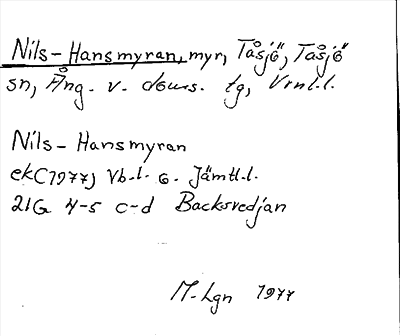 Nils-Hansmyran, myr, Tåsjö, Tåsjö
sn, Ång. v. doms. tg, Vrnl.l.
Nils-Hansmyran
ek(1977) Vb.l. o. Jämtl.l.
21G 4-5 c-d Backsvedjan
M.Lgn 1977